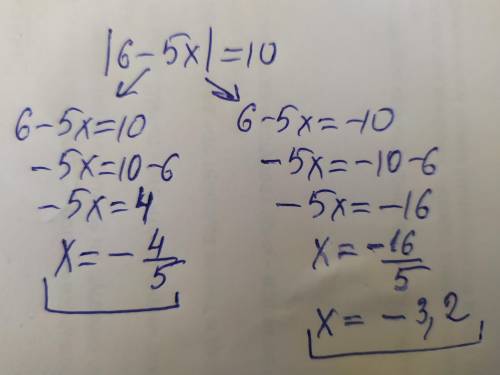 |6-5x|=10
6-5x=10
-5x=10-6
-5x=4
x=-4/5
6-5x=-10
-5x=-10-6
-5x=-16
x=-16/5
x=-3,2